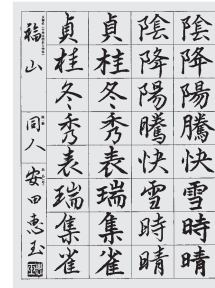 陰降陽騰快雪時晴
陰降陽騰快雪時晴
貞桂冬秀表瑞集雀
貞桂冬秀表瑞集雀
福山 同人 安田恵玉